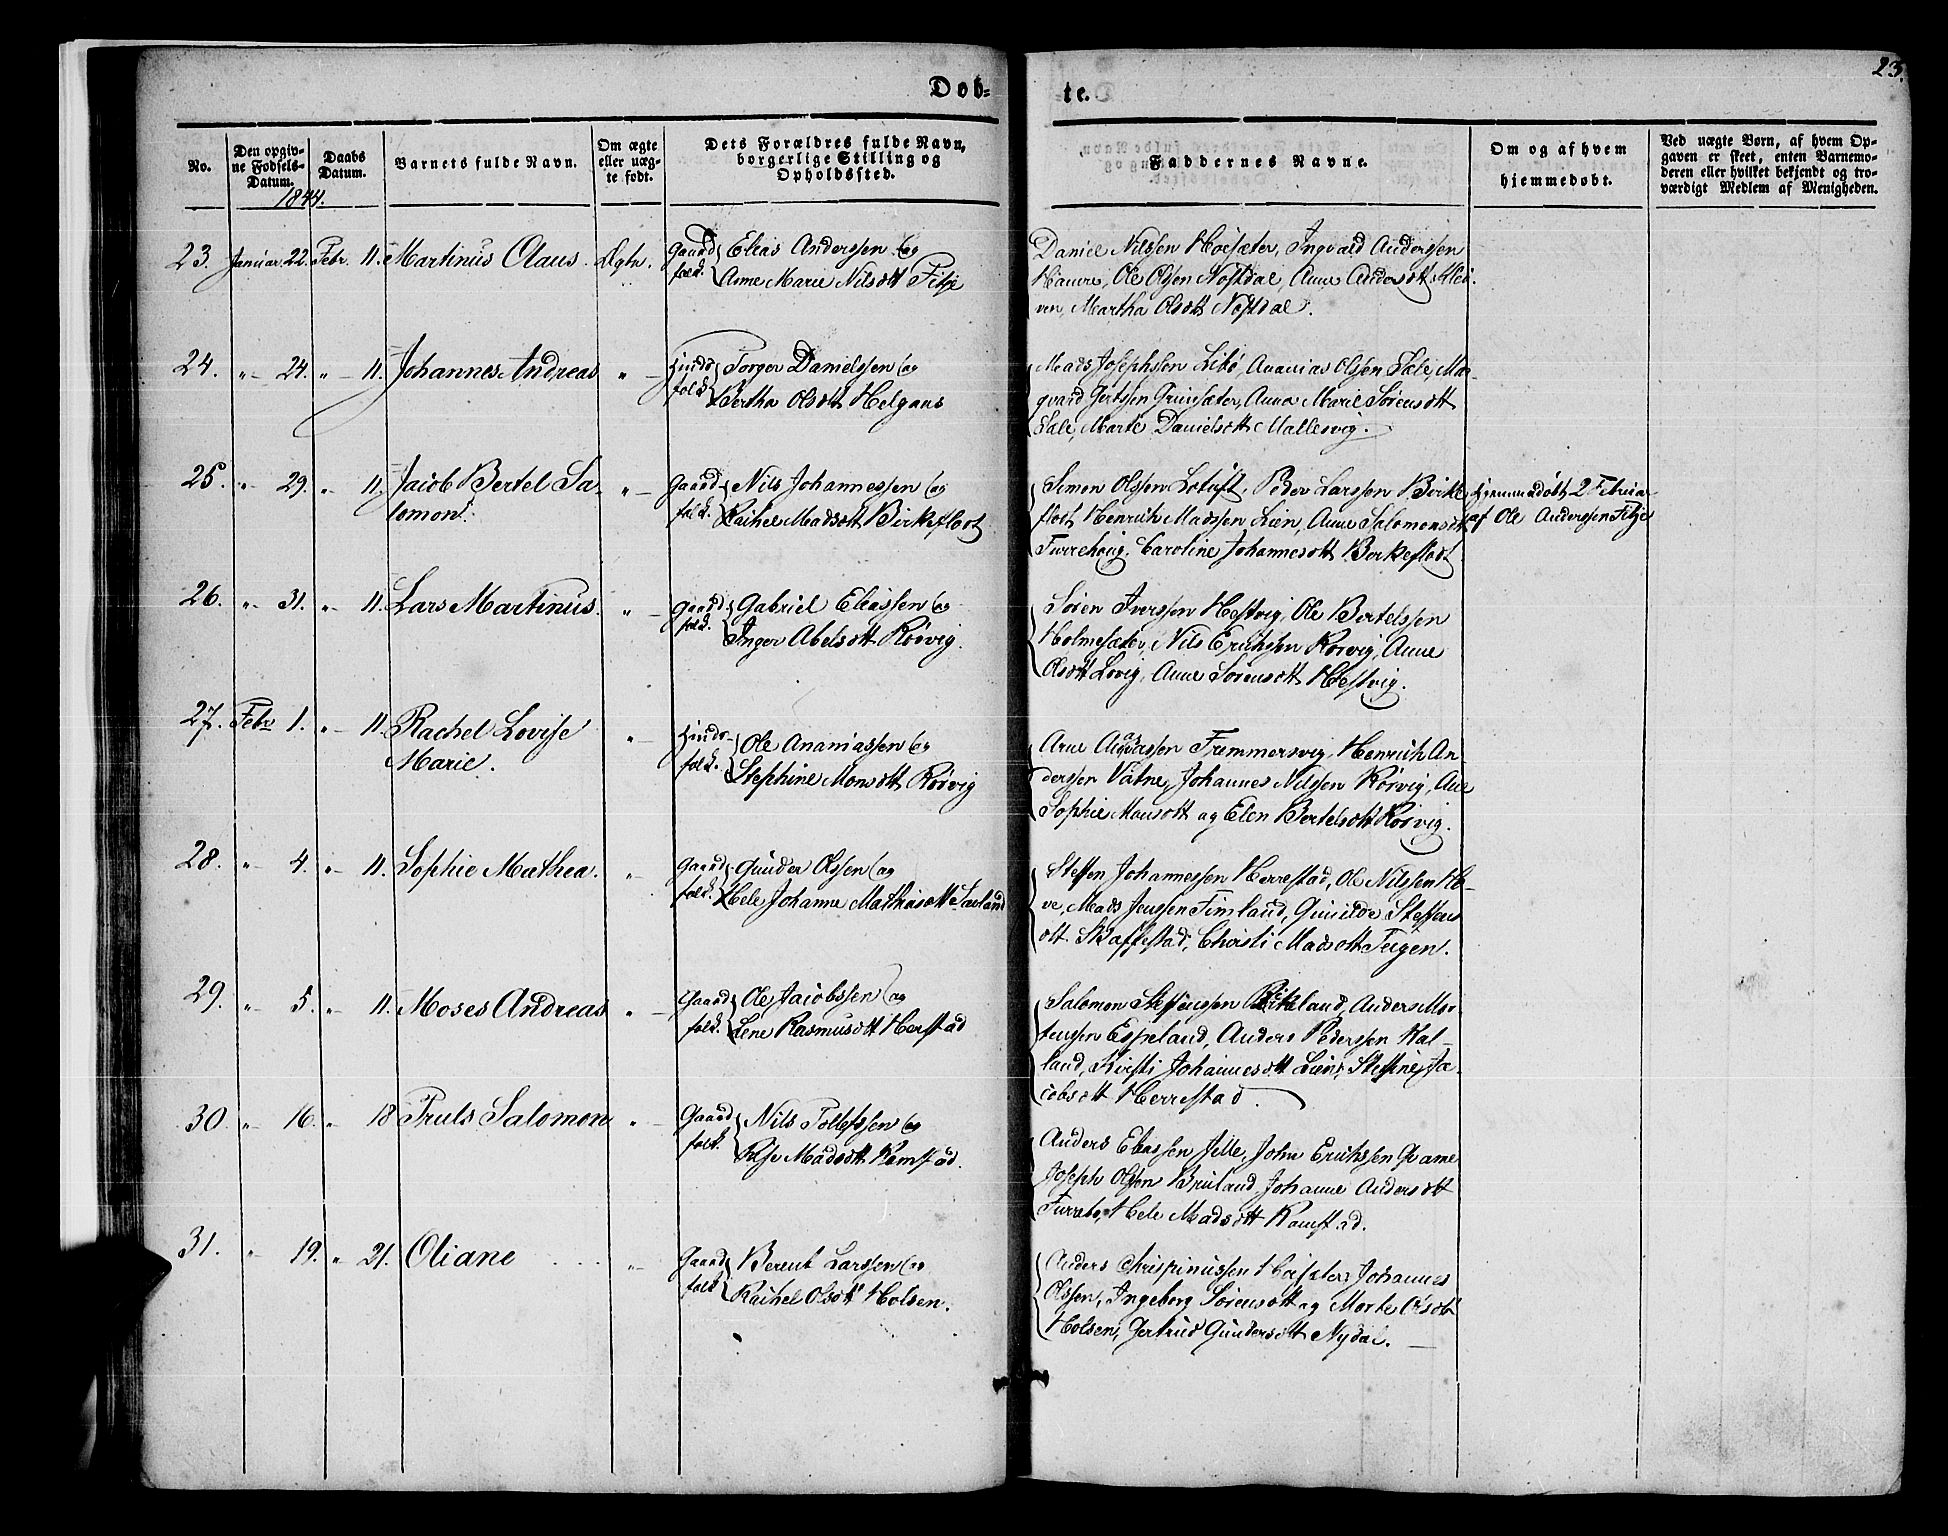 23.
Døb-
te.
No.
Den opgiv-
ne Fødsels-
Datum.
Daabs
Datum.
Barnets fulde Navn.
Om ægte
eller uæg-
te født.
Dets Forældres fulde Navn,
borgerlige Stilling og
Opholdssted.
Faddernes Navne.
Om og af hvem
hjemmedøbt.
Ved uægte Børn, af hvem Op-
gaven er skeet, enten Barnemo-
deren eller hvilket bekjendt og tro-
værdigt Medlem af Menigheden.
1844.
23. Januar 22. Febr. 11. Martinus Olaus. Ægte. Gaard Elias Anderssen og
folk. Anne Marie Nilsdtt Fitje
Daniel Nilssen Hoesæter, Ingvald Anderssen
Hauwe, Ole Olssen Nøstdal, Anne Andersdtt Klei-
ven, Martha Olsdtt Nøstdal.
24. " 24. " 11. Johannes Andreas " Huuds Torger Danielssen og
folk Bertha Olsdtt Helgaas
Mads Josephsen Libø, Ananias Olssen Sæle, Mar-
qvard Gertssen Grimsæter, Anna Marie Sørensdtt
Sæle, Marte Danielsdtt Mallesvig.
25. " 29. " 11. Jacob Bertel Sa- " Gaard Nils Johannessen og
lomon. folk. Rachel Madsdtt Birkeflødt
Simon Olssen Lotuft, Peder Larssen Birke
flødt Henrich Madssen Lien, Anne Salomonsdtt
Furrehoug, Caroline Johannesdtt Birkeflødt
Hjemmedøbt 2 Februar
af Ole Anderssen Fitje
26. " 31. " 11. Lars Martinus. " Gaard Gabriel Eliassen og
folk. Inger Abelsdtt Rørvig.
Søren Iverssen Hestvig, Ole Bertelssen
Holmesæter, Nils Erichssen Rørvig, Anne
Olsdtt Lovig, Anne Sørensdtt Hestvig.
27. Febr 1. " 11. Rachel Lovise " Huuds- Ole Ananiassen og
Marie. folk. Stephine Monsdtt Rørvig
Arne Fremmersvig, Henrich An-
derssen Vatne, Johannes Nilssen Rørvig, Ane
Sophie Monsdtt og Elen Bertelsdtt Rørvig.
28. " 4. " 11. Sophie Mathea. " Gaard Gunder Olssen og
folk. Hele Johanne Mathiasdtt Savland
Steffen Johannessen Herrestad, Ole Nilssen Ho-
ve, Mads Jenssen Timland, Gunilde Steffens
dtt Skaffestad, Christi Madsdtt Teigen.
29. " 5. " 11. Moses Andreas " Gaard Ole Jacobssen og
folk. Lene Rasmusdtt Herstad
Salomon Steffenssen Birkeland, Anders Mor-
tenssen Espeland, Anders Pederssen Hal-
land, Kirsti Johannesdtt Lien, Steffine Ja-
cobsdtt Herrestad.
30. " 16. " 18 Truls Salomon " Gaard Nils Tollefssen og
folk. Silje Madsdtt Ramstad.
Anders Eliassen Jelle, John Erichssen Qvame
Joseph Olssen Bruland, Johanne Andersdtt
Furrebø, Hele Madsdtt Ramstad.
31. " 19. " 21. Oliane " Gaard Berent Larssen og
folk Rachel Olsdtt Holsen.
Anders Chrispinussen Hoesæter, Johannes
Olssen, Ingeborg Sørensdtt og Morte Olsdtt
Holsen, Gertrud Gundersdtt Nydal.